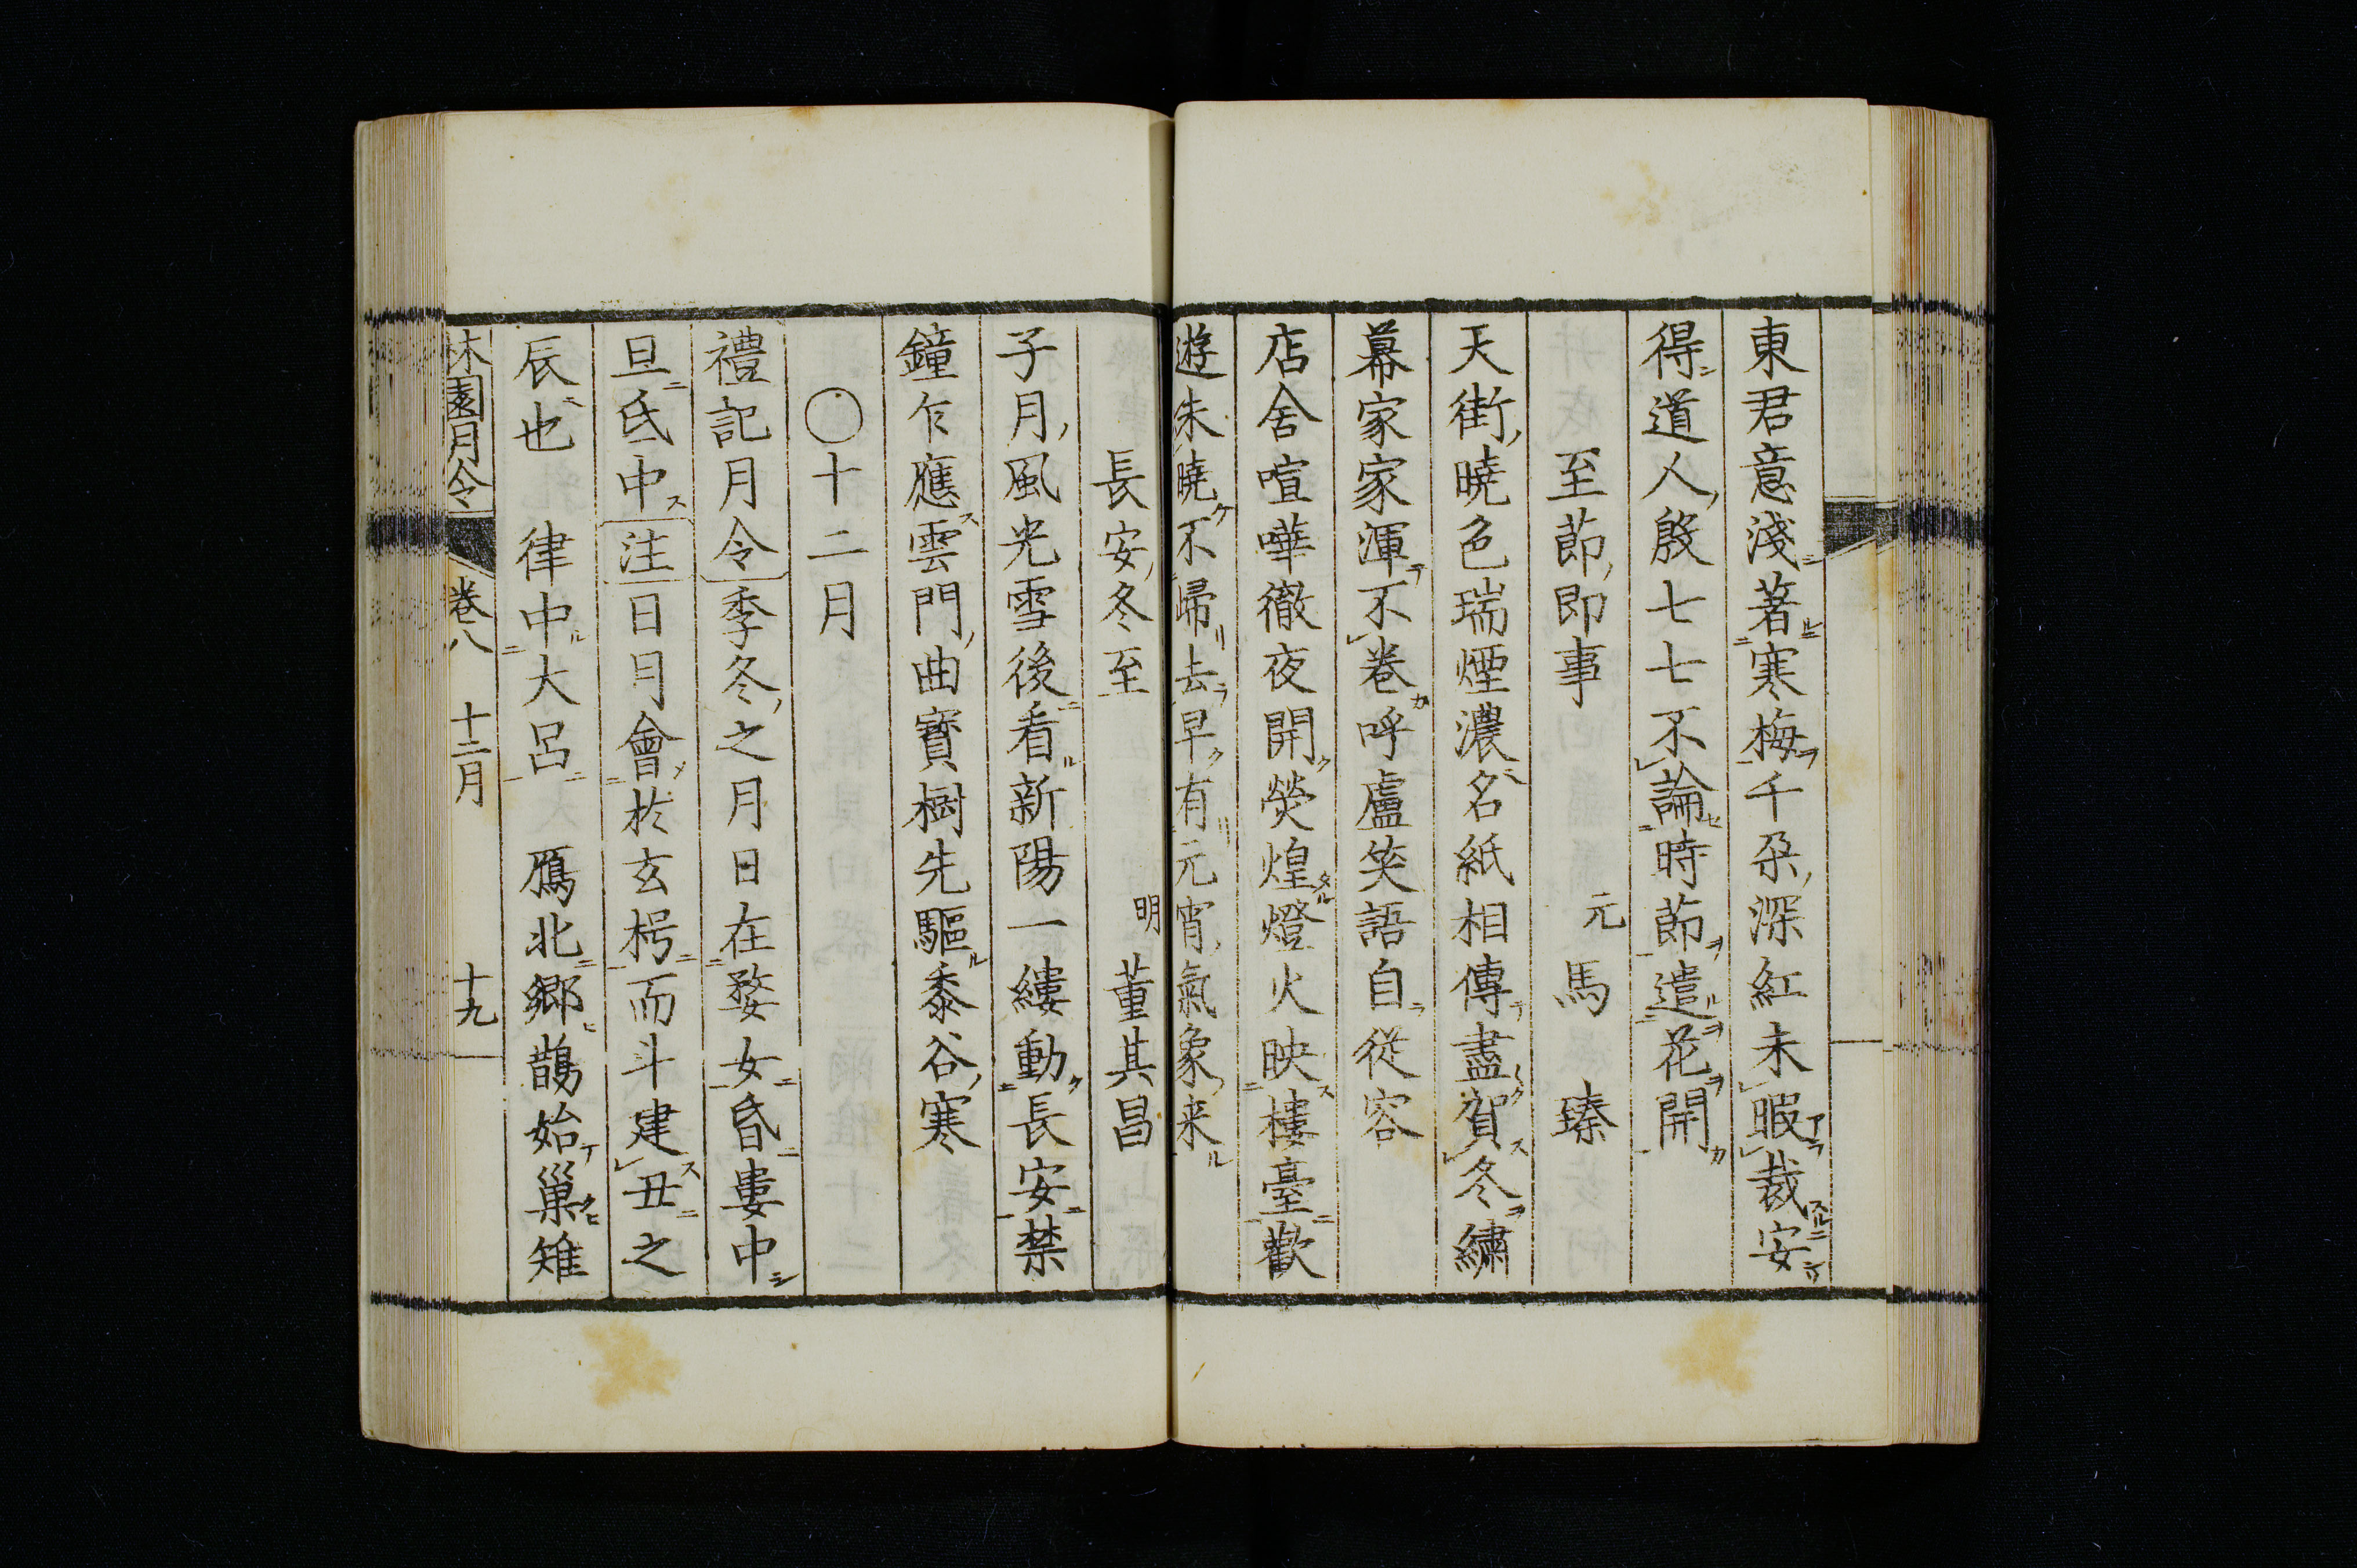 東君意淺著寒梅千朶深紅未暇裁安
得道人殷七七不論時節遣花開
至節即事　元　馬臻
天街曉色瑞煙濃名紙相傳盡賀冬繡
幕家家渾不卷呼盧笑語自從容
店舍喧嘩徹夜開熒煌燈火映樓臺歡
遊未曉不歸去早有元宵氣象来
長安冬至　明　董其昌
子月風光雪後看新陽一縷動長安禁
鐘乍應雲門曲寶樹先驅黍谷寒
〇十二月
禮記月令季冬之月日在婺女昏婁中
旦氐中注日月會於玄枵而斗建丑之
辰也　律中大呂　鴈北鄉鵲始巢雉
林園月令　卷八　十二月　十九